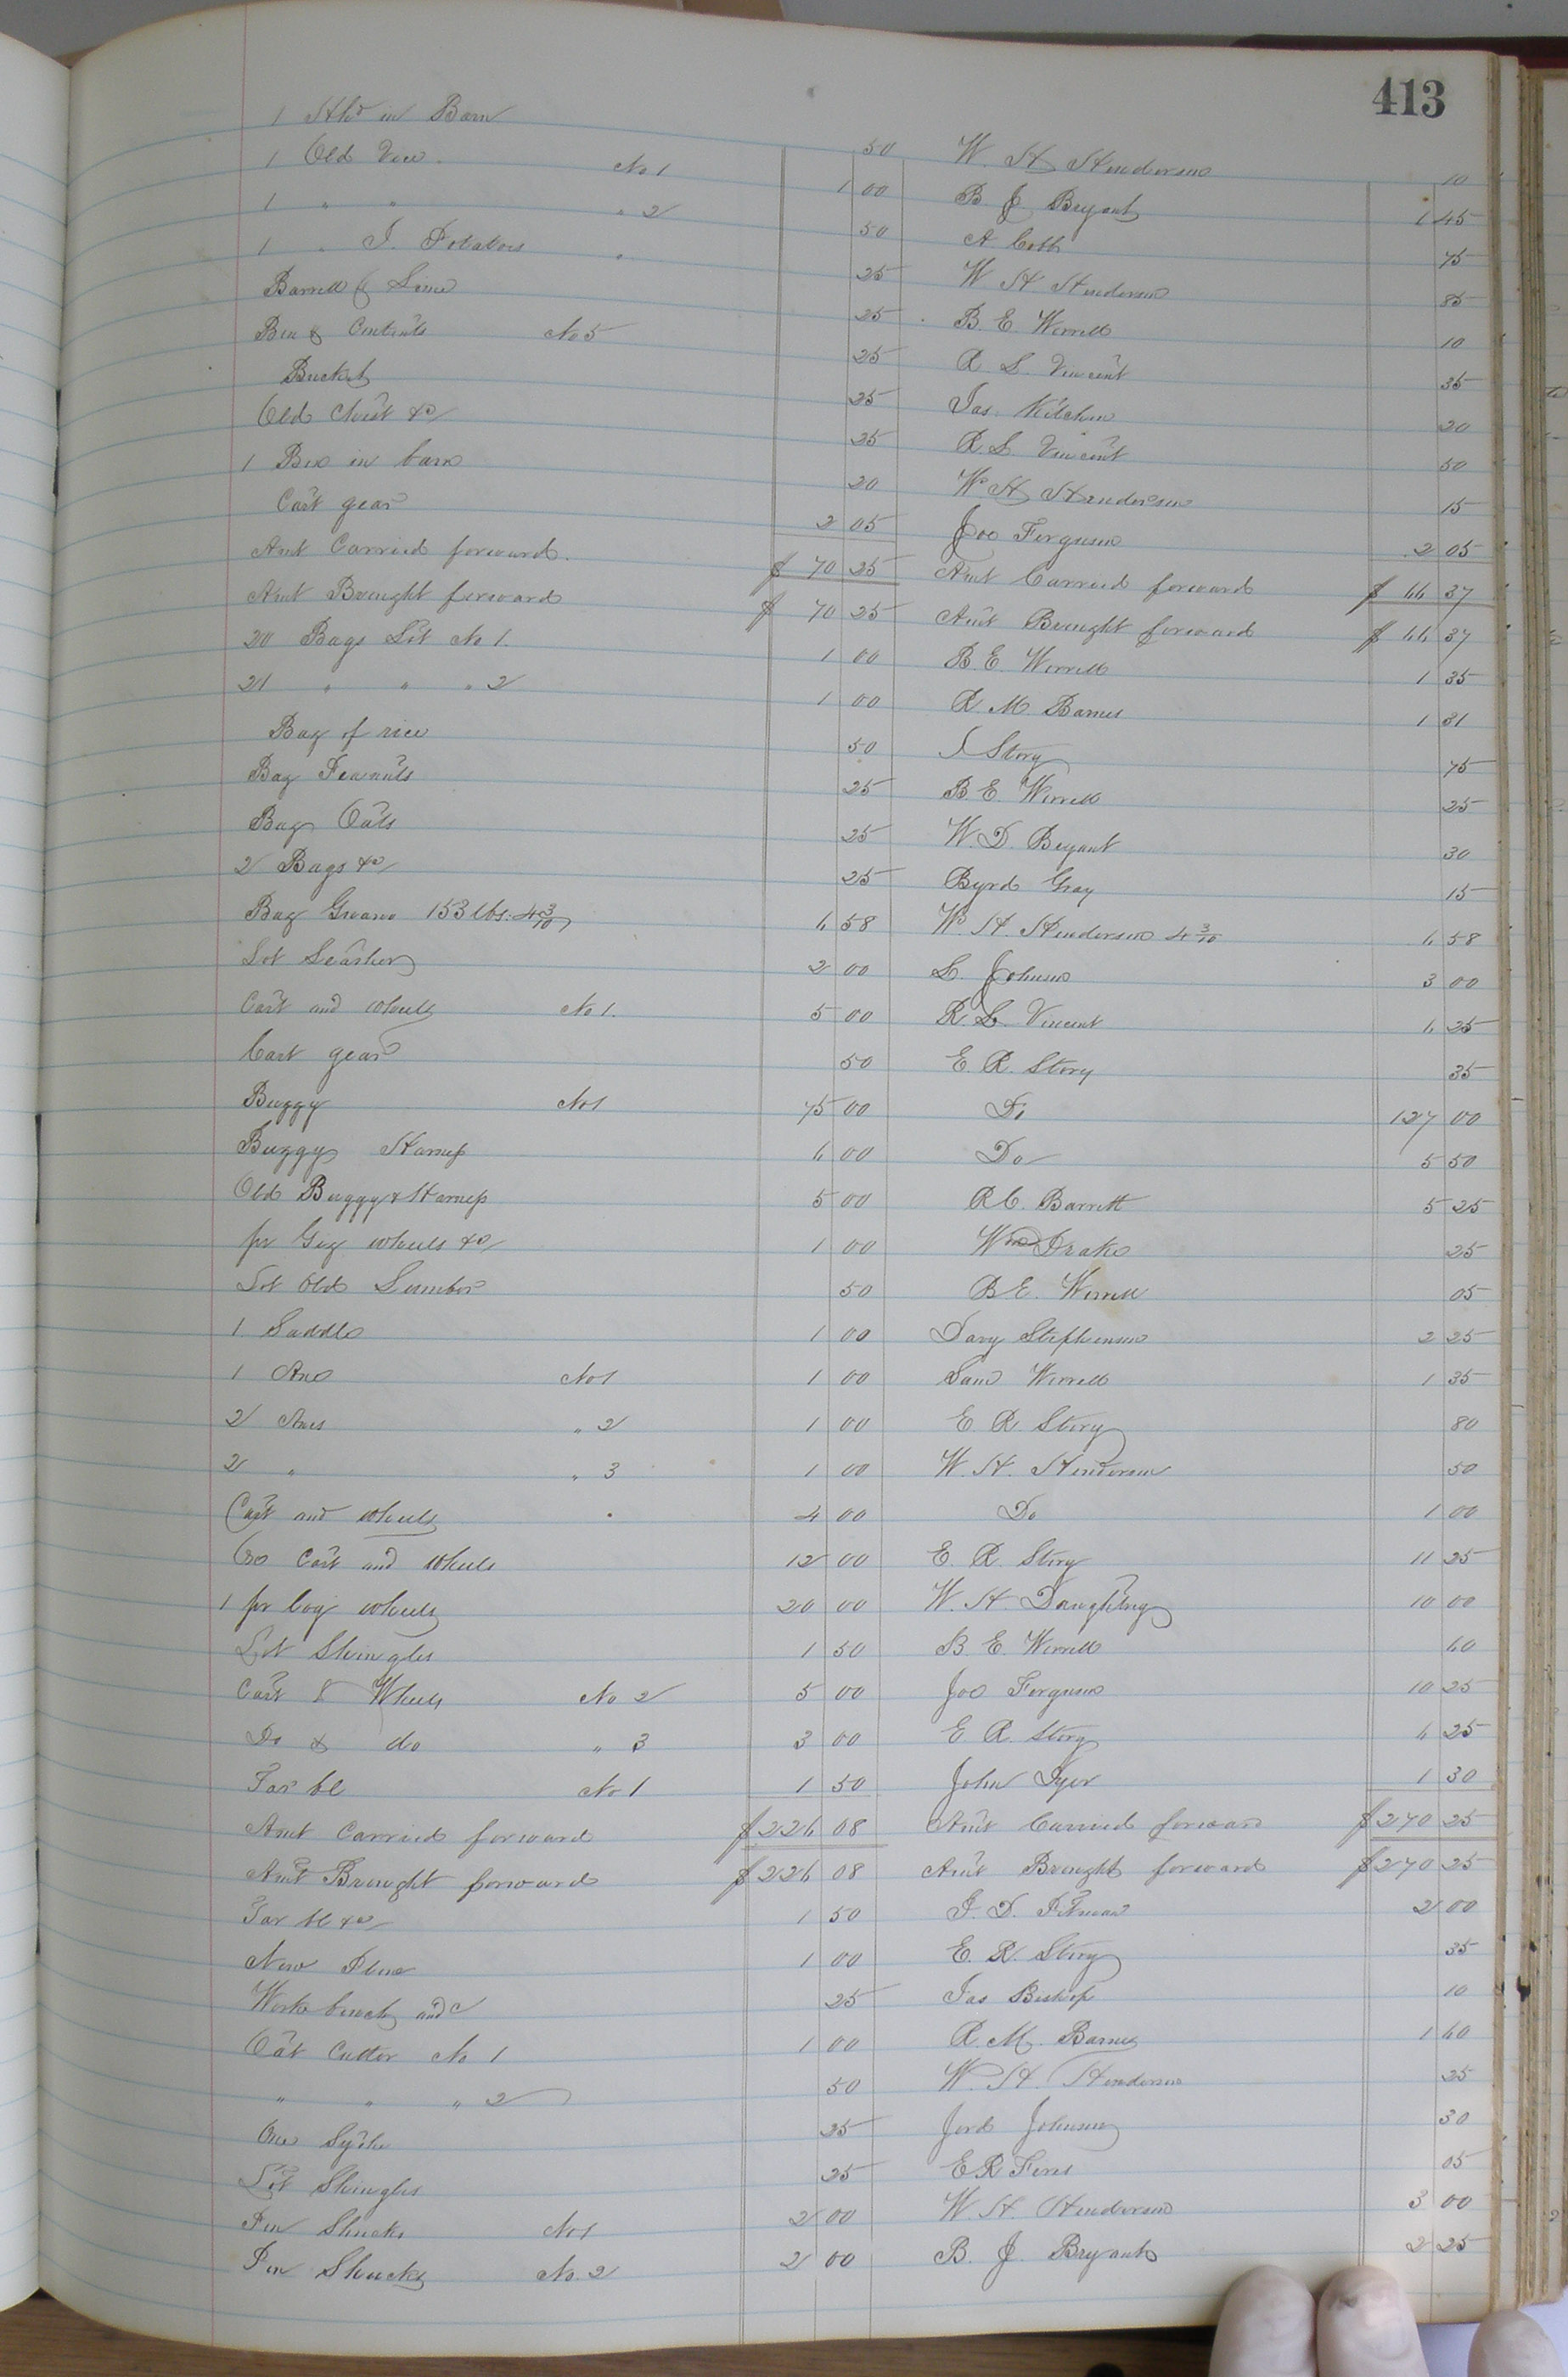 413
1 Hhd in Barn 50 W. H Henderson 10
1 Old Vice No 1 1 00 B J Bryant 1 45
1 " " " 2 50 A Cobb 75
1 " I. Potatoes " 25 W H Henderson 85
Barrell of Lime 25 B. E Worrell 10
Box & Contents No 5 25 R L Vincent 35
Bucket 25 Jas. Kitchen 20
Old Chest &c 25 R. L Vincent 50
1 Box in barn 20 W H Henderson 15
Cart gear 2 05 Joe Ferguson 2 05
Amt Carried forward. $ 70 25 Amt Carried forward $ 66 37
Amt Brought forward $ 70 25 Amt Brought forward $ 66 37
20 Bags Lot No 1. 1 00 B E Worrell 1 35
21 " " " 2 1 00 R. M. Barnes 1 31
Bag of rice 50 J Story 75
Bag Peanuts 25 B. E. Worrell 25
Bag Oats 25 W. D. Bryant 30
2 Bags &c 25 Byrd Gray 15
Bag Guano 153 lbs. 4 3/10 6 58 W. H. Henderson 4 3/10 6 58
Lot Leather 2 00 L. Johnson 3 00
Cart and wheels No 1. 5 00 R. L. Vincent 6 25
Cart gear 50 E. R. Story 35
Buggy No 1 75 00 Do 127 00
Buggy Harness 6 00 Do 5 50
Old Buggy & Harness 5 00 R C. Barrett 5 25
pr Gig wheels &c 1 00 Wm Drake 25
Lot Old Lumber 50 B E. Worrell 05
1 Saddle 1 00 Davy Stephenson 2 25
1 Axe No 1 1 00 Sam Worrell 1 35
2 Axes " 2 1 00 E. R. Story 80
2 " " 3 1 00 W. H. Henderson 50
Cart and wheels 4 00 Do 1 00
Ox Cart and wheels 12 00 E. R. Story 11 25
1 pr log wheels 20 00 W. H. Daughtrey 10 00
Lot Shingles 1 50 B. E. Worrell 60
Cart & Wheels No 2 5 00 Joe Ferguson 10 25
Do & do " 3 3 00 E R. Story 6 25
Tar bl No 1 1 50 John Dyer 1 30
Amt Carried forward $ 226 08 Amt Carried forward $ 270 25
Amt Brought forward $ 226 08 Amt Brought forward $ 270 25
Tar bl &c 1 50 J. D. Pitman 2 00
New Plow 1 00 E. R. Story 35
Work bench and c 25 Jas Bishop 10
Oat Cutter No 1 1 00 R. M. Barnes 1 60
" " " 2 50 W. H. Henderson 25
One Sythe 25 Jord Johnson 30
Lot Shingles 25 E R 05
Pen Shucks No 1 2 00 W H. Henderson 3 00
Pen Shucks No. 2 2 00 B. J. Bryant 2 25